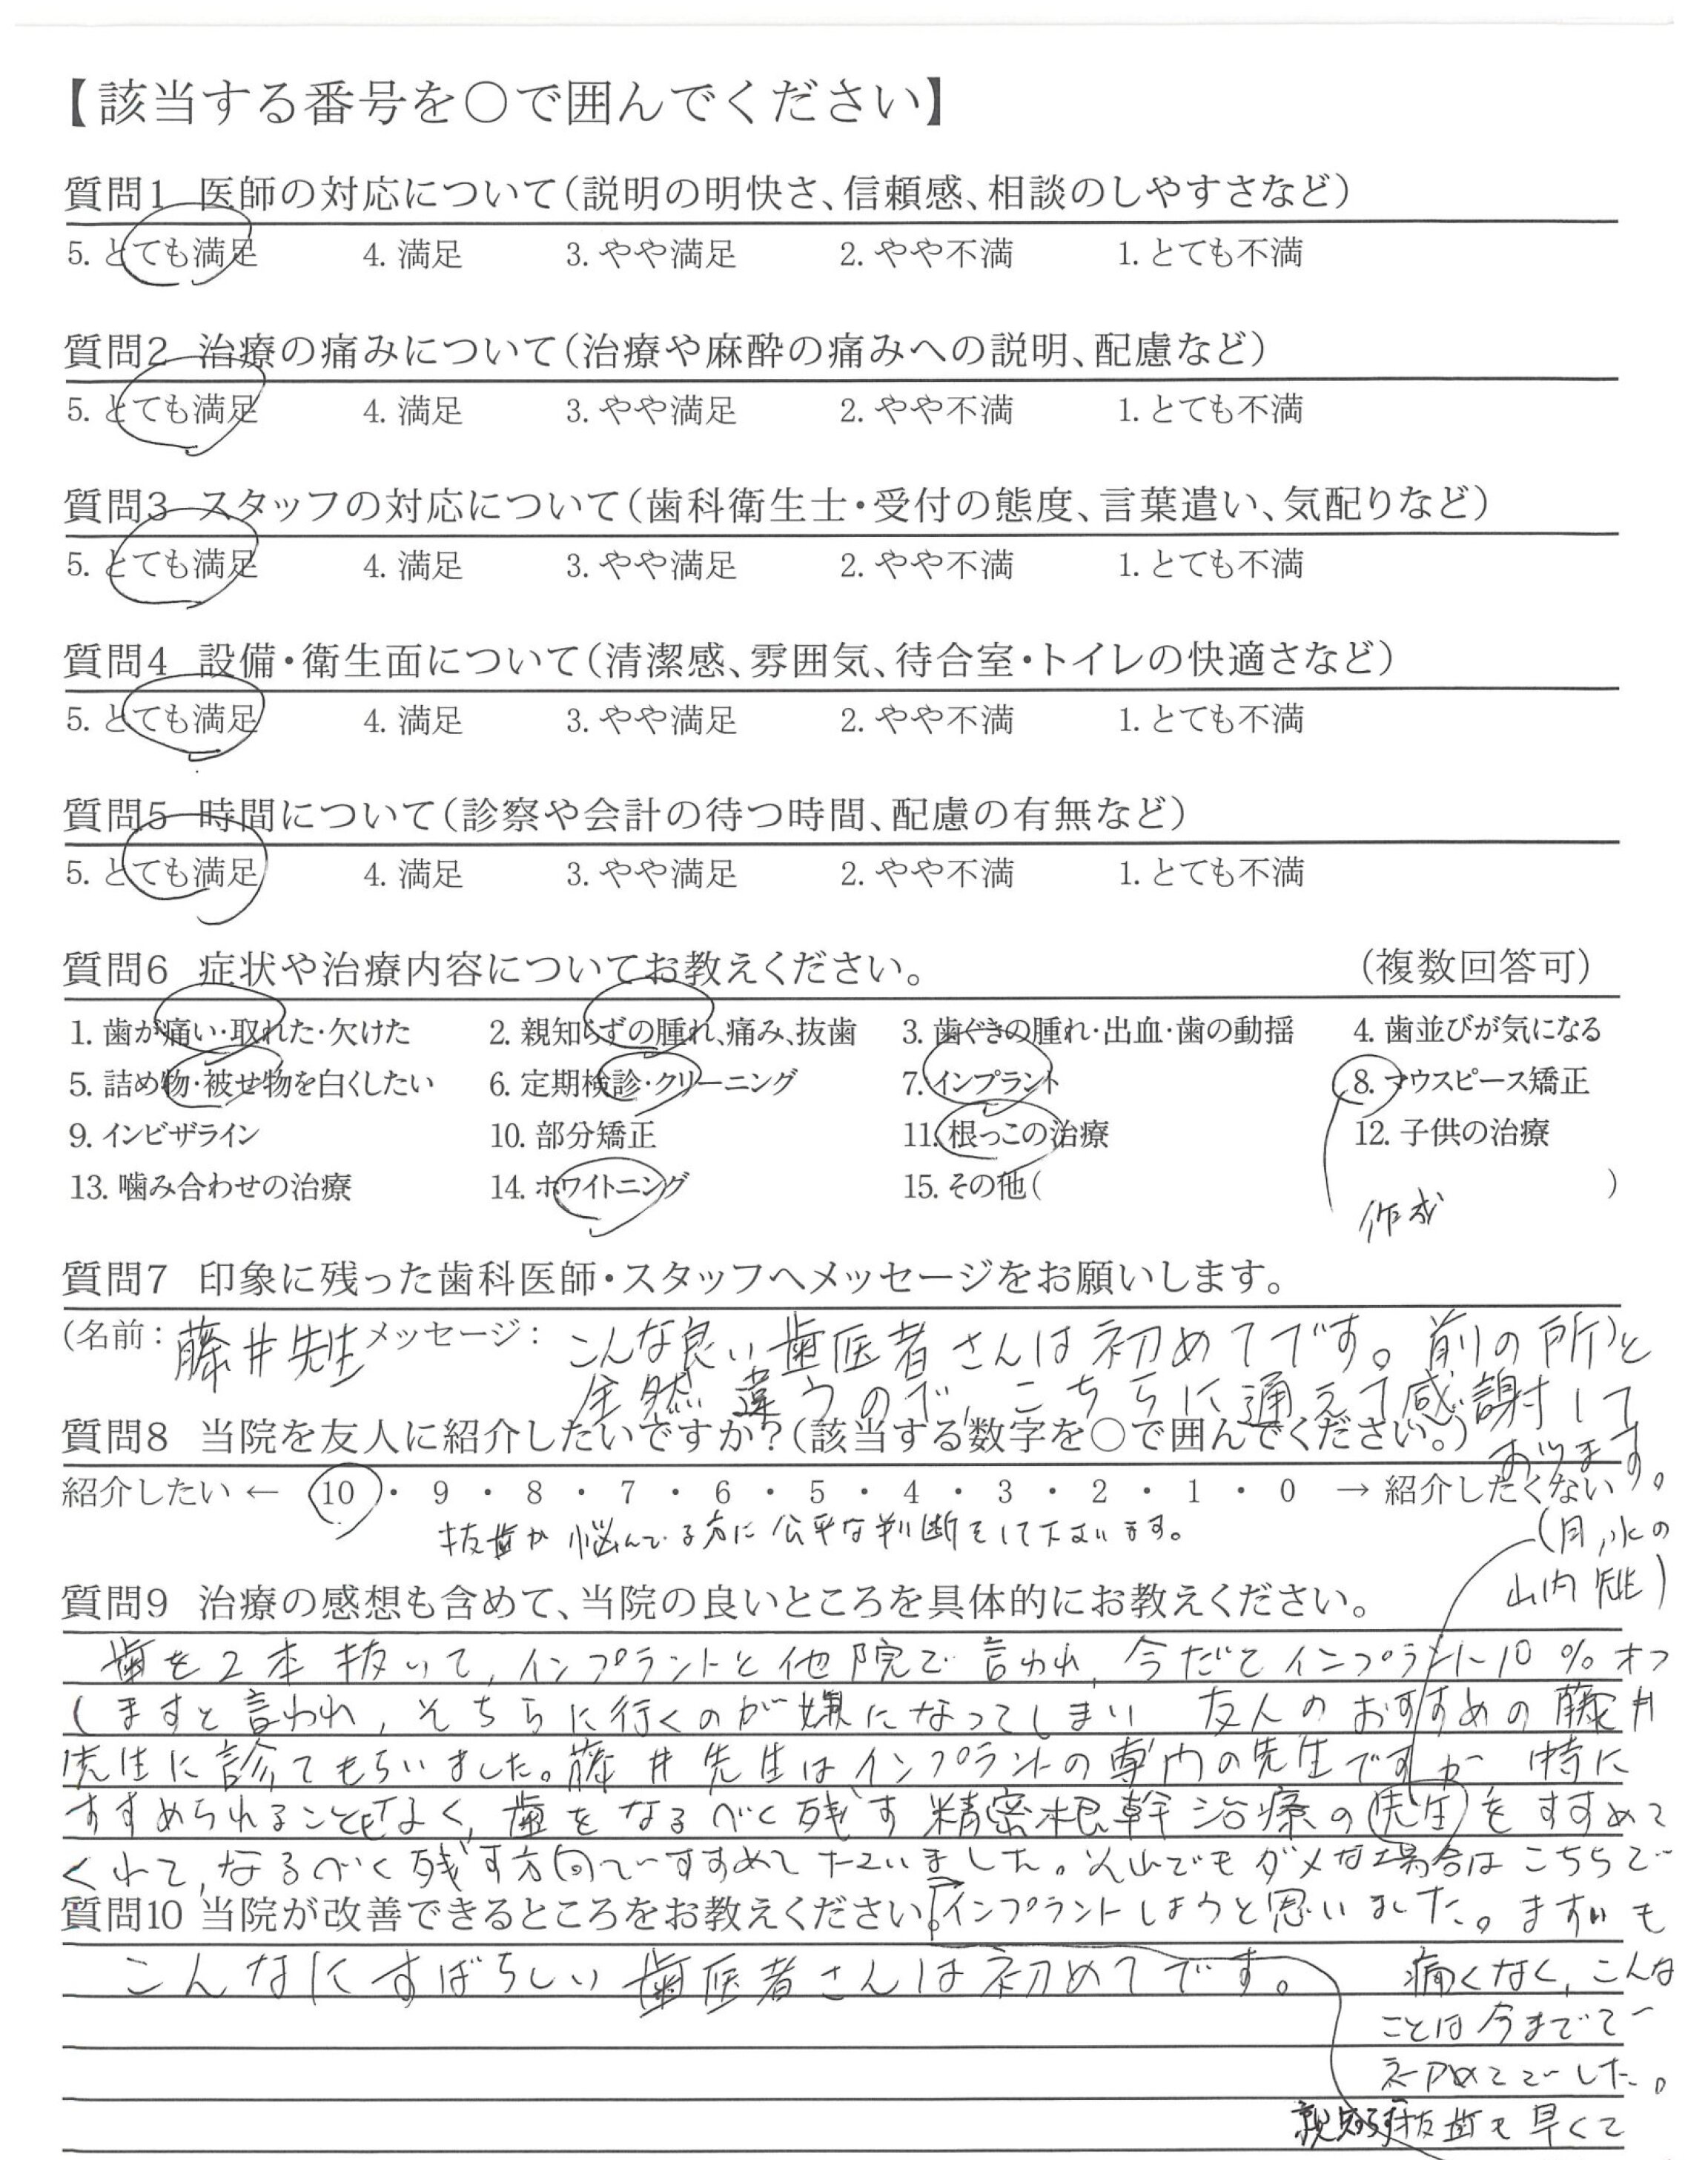 【該当する番号を○で囲んでください】
質問1 医師の対応について(説明の明快さ、信頼感、相談のしやすさなど)
5. とても満足 4. 満足 3. やや満足 2. やや不満 1. とても不満
質問2 治療の痛みについて(治療や麻酔の痛みへの説明、配慮など)
5. とても満足 4. 満足 3. やや満足 2. やや不満 1. とても不満
質問3 スタッフの対応について(歯科衛生士・受付の態度、言葉遣い、気配りなど)
5. とても満足 4. 満足 3. やや満足 2. やや不満 1. とても不満
質問4 設備・衛生面について(清潔感、雰囲気、待合室・トイレの快適さなど)
5. とても満足 4. 満足 3. やや満足 2. やや不満 1. とても不満
質問5 時間について(診察や会計の待つ時間、配慮の有無など)
5. とても満足 4. 満足 3. やや満足 2. やや不満 1. とても不満
質問6 症状や治療内容についてお教えください。 (複数回答可)
1. 歯が痛い・取れた・欠けた 2. 親知らずの腫れ、痛み、抜歯 3. 歯ぐきの腫れ・出血・歯の動揺 4. 歯並びが気になる
5. 詰め物・被せ物を白くしたい 6. 定期検診・クリーニング 7. インプラント 8. マウスピース矯正
9. インビザライン 10. 部分矯正 11. 根っこの治療 12. 子供の治療
13. 噛み合わせの治療 14. ホワイトニング 15. その他( )
作成
質問7 印象に残った歯科医師・スタッフへメッセージをお願いします。
(名前: 藤井先生 メッセージ: こんな良い歯医者さんは初めてです。前の所と
全然違うので、こちらに通えて感謝して
おります。
質問8 当院を友人に紹介したいですか?(該当する数字を○で囲んでください。)
紹介したい ← 10 ・ 9 ・ 8 ・ 7 ・ 6 ・ 5 ・ 4 ・ 3 ・ 2 ・ 1 ・ 0 → 紹介したくない
抜歯か悩んでる方に公平な判断をして下さいます。
(月,水の
山内先生)
質問9 治療の感想も含めて、当院の良いところを具体的にお教えください。
歯を2本抜いて,インプラントと他院で言われ,今だとインプラント10%オフ
しますと言われ,そちらに行くのが嫌になってしまい 友人のおすすめの藤井
先生に診てもらいました。藤井先生はインプラントの専門の先生ですが 特に
すすめられることもなく,歯をなるべく残す精密根幹治療の先生をすすめて
くれて,なるべく残す方向ですすめて下さいました。それでもダメな場合はこちらで
質問10 当院が改善できるところをお教えください。
インプラントしようと思いました。ますいも
痛くなく,こんな
ことは今までで
初めてでした。
親知らず抜歯も早くて
こんなにすばらしい歯医者さんは初めてです。